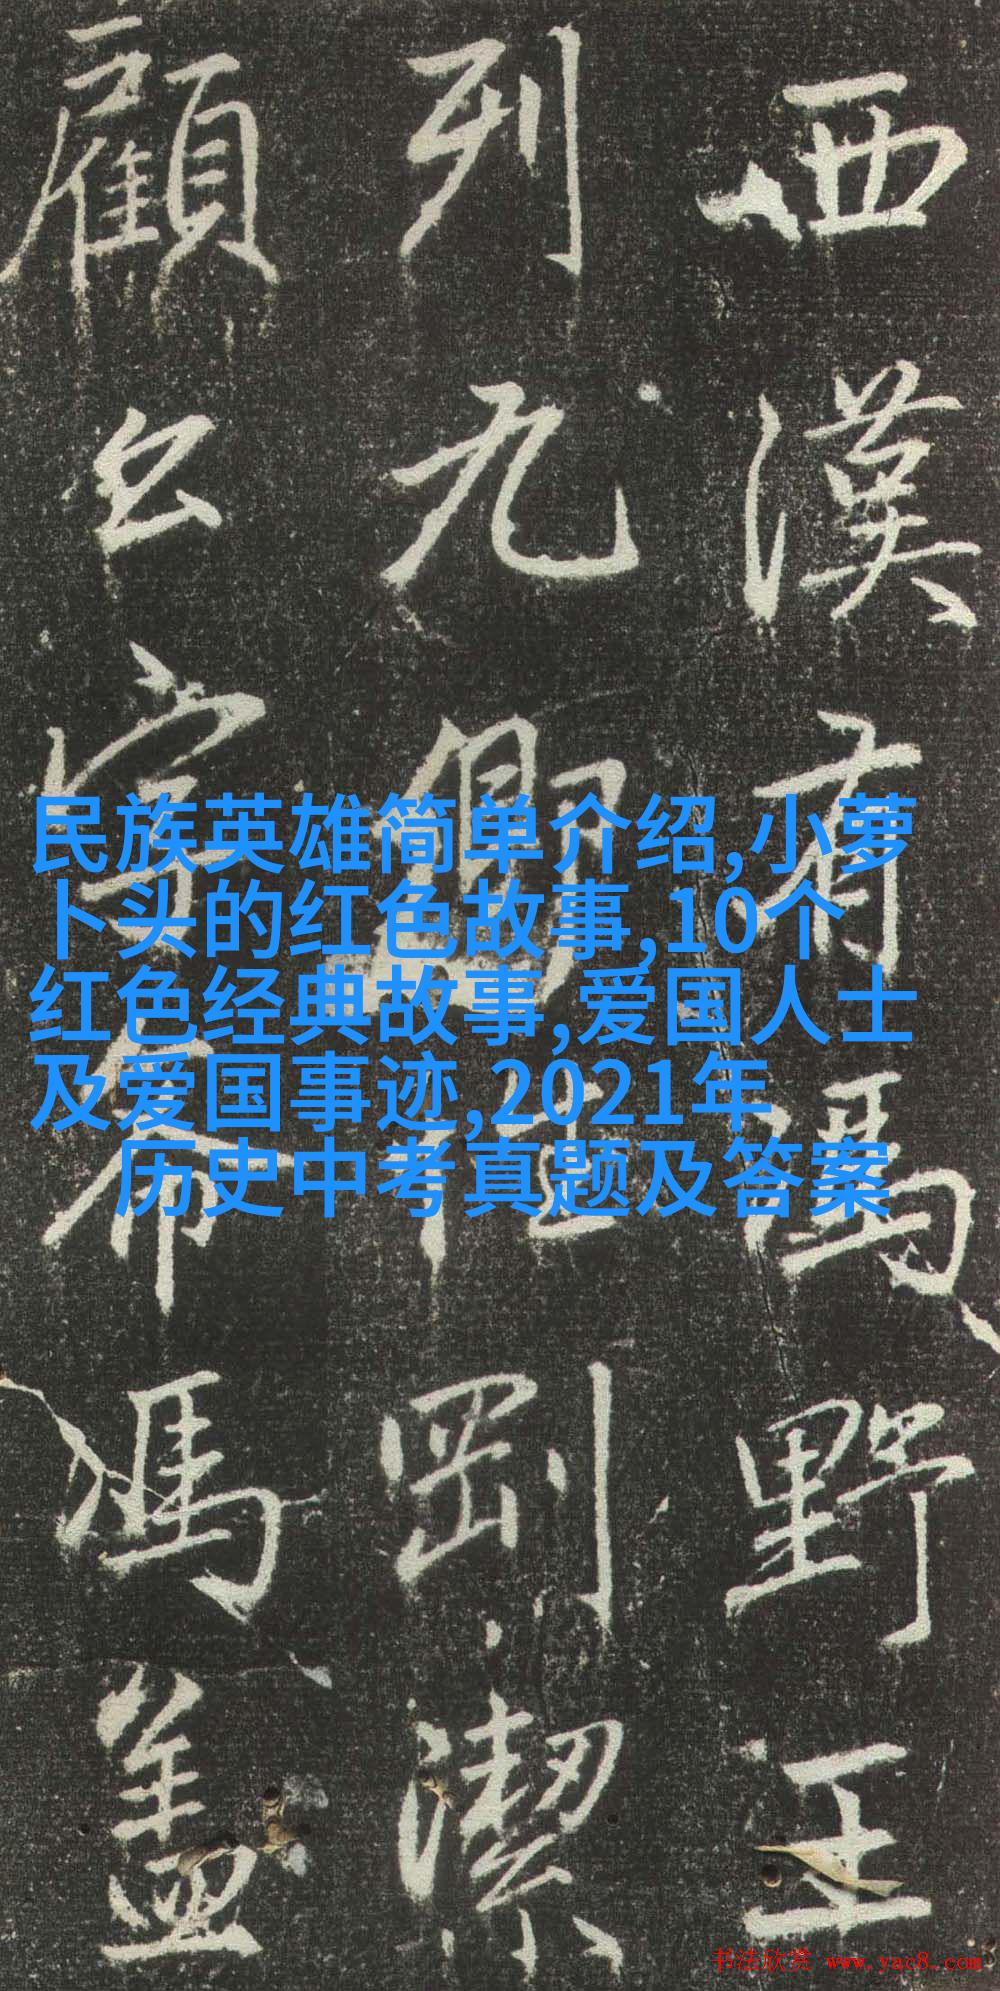 西漢有馮野王
列九卿剛潔
顧公字希馮蓋
民族英雄简单介绍,小萝
卜头的红色故事,10个
红色经典故事,爱国人士
及爱国事迹,2021年
历史中考真题及答案
书法欣赏 www.yac8.com